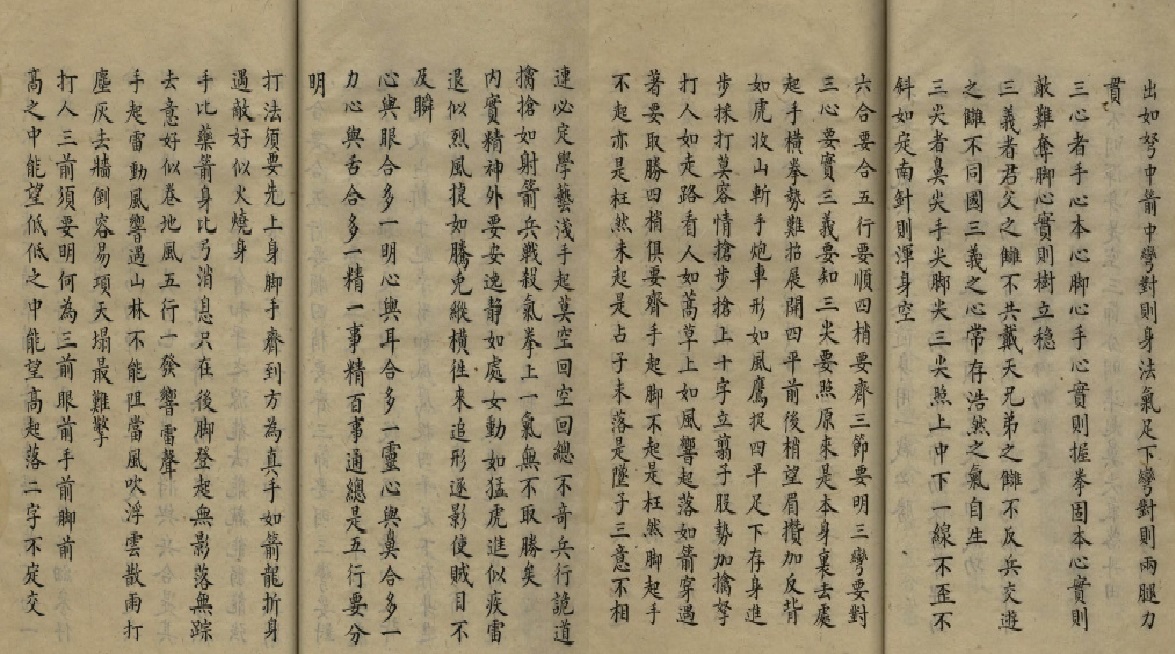 出如弩中箭中彎對則身法氣足下彎對則兩腿力
貫
三心者手心本心脚心手心實則握拳固本心實則
敵難奔脚心實則樹立穩
三義者君父之讎不共戴天兄弟之讎不反兵交遊
之讎不同國三義之心常存浩然之氣自生
三尖者鼻尖手尖脚尖三尖照上中下一線不歪不
斜如定南針則渾身空
六合要合五行要順四梢要齊三節要明三彎要對
三心要實三義要知三尖要照原來是本身裏去處
起手橫拳勢難招展開四平前後梢望眉攢加反背
如虎收山斬手炮車形如風鷹捉四平足下存身進
步採打莫容情搶步搶上十字立剪子股勢加擒拏
打人如走路看人如蒿草上如風響起落如箭穿遇
著要取勝四梢俱要齊手起脚不起是枉然脚起手
不起亦是枉然未起是占子未落是墜子三意不相
連必定學藝淺手起莫空回空回總不奇兵行詭道
擒搶如射箭兵戰殺氣拳上一氣無不取勝矣
內實精神外要安逸靜如處女動如猛虎進似疾雷
退似烈風捷如騰兎縱橫往來追形逐影使賊目不
及瞬
心與眼合多一明心與耳合多一靈心與鼻合多一
力心與舌合多一精一事精百事通總是五行要分
明
打法須要先上身脚手齊到方為真手如箭龍折身
遇敵好似火燒身
手比藥箭身比弓消息只在後脚登起無影落無踪
去意好似卷地風五行一發響雷聲
手起雷動風響遇山林不能阻當風吹浮雲散雨打
塵灰去牆倒容易項天塌最難擎
打人三前須要明何為三前眼前手前脚前
高之中能望低低之中能望高起落二字不定交